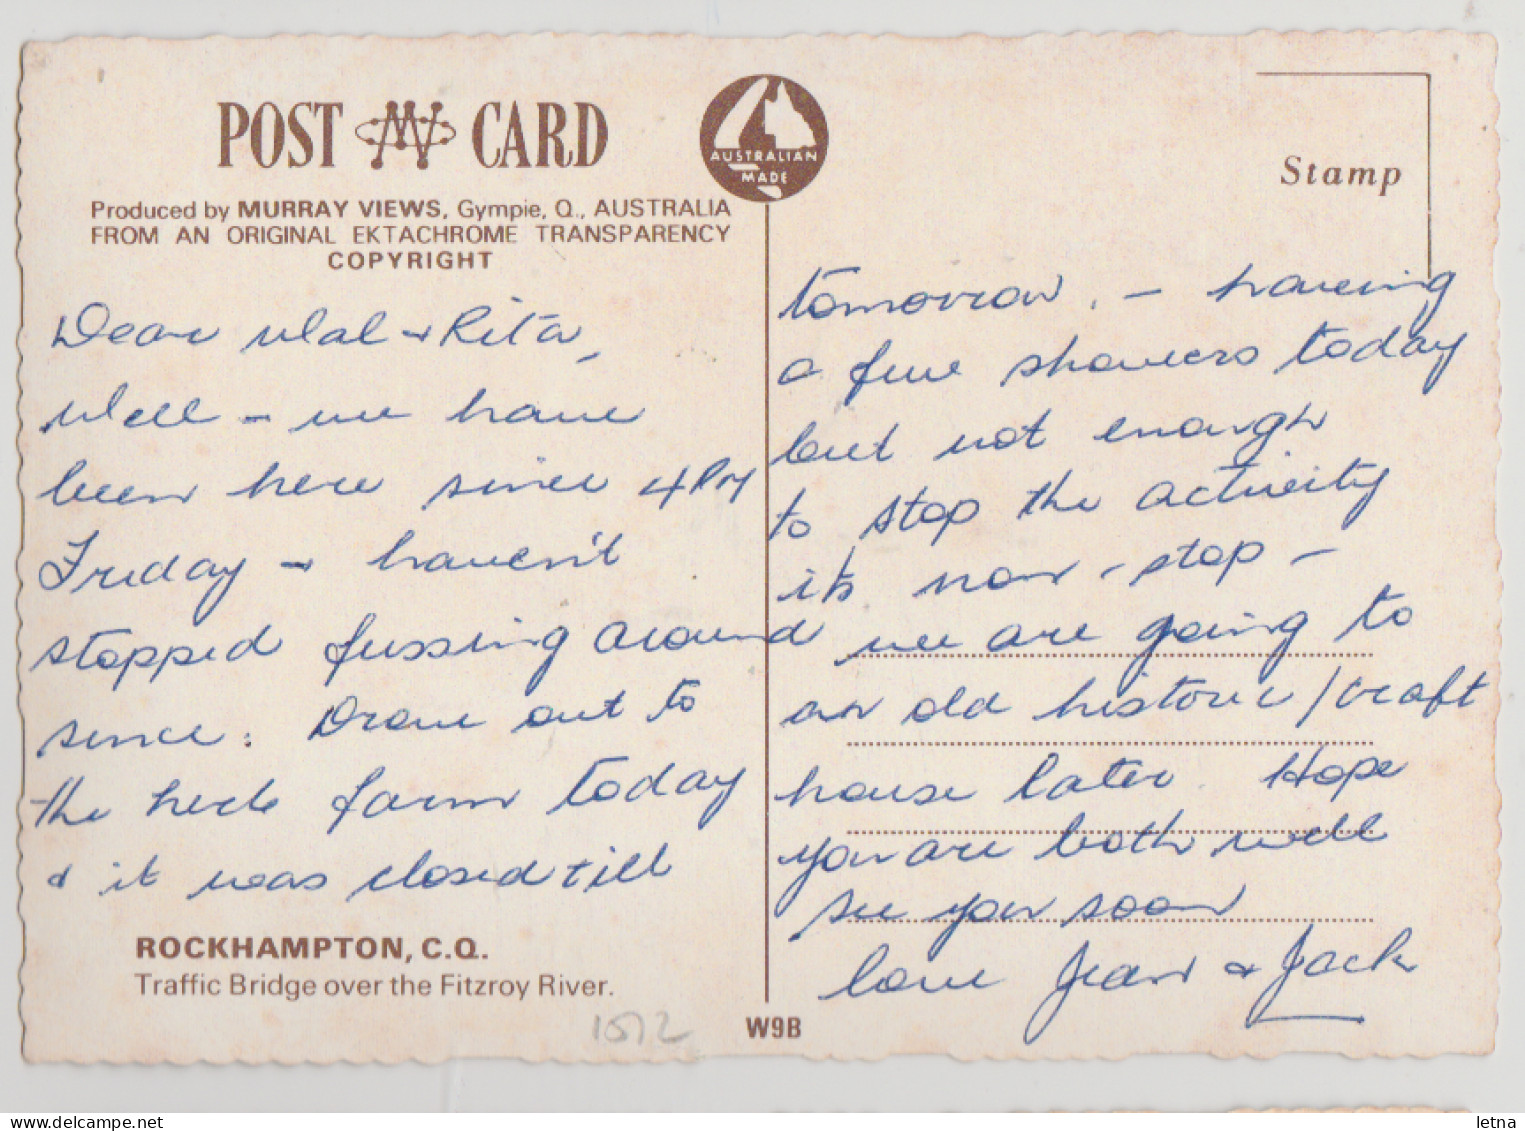 POST CARD
AUSTRALIAN
MADE
Stamp
Produced by MURRAY VIEWS, Gympie, Q., AUSTRALIA
FROM AN ORIGINAL EKTACHROME TRANSPARENCY
COPYRIGHT
Dear Wal & Rita,
Well - we have
been here since 4 PM
Friday & haven't
stopped fussing around
since. Drove out to
the herb farm today
& it was closed till
tomorrow. - having
a few showers today
but not enough
to stop the activity
its non-stop -
we are going to
an old historic / craft
house later. Hope
you are both well
see you soon
love Jean & Jack
ROCKHAMPTON, C.Q.
Traffic Bridge over the Fitzroy River.
W9B
letna